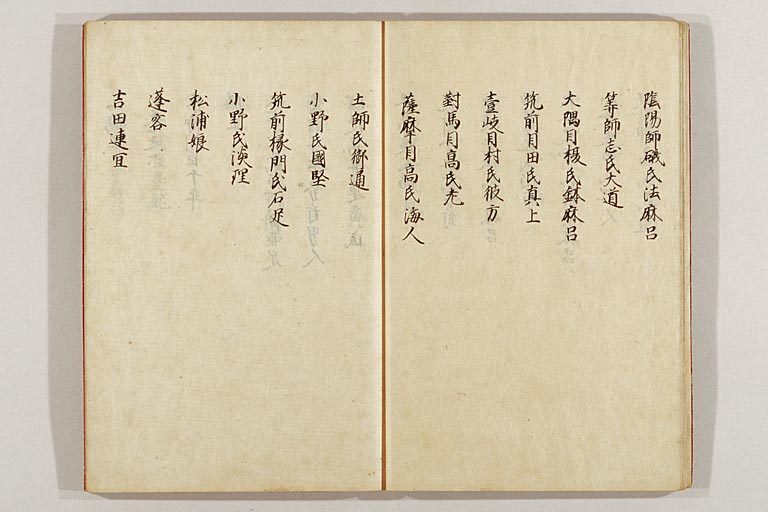 陰陽師磯氏法麻呂
筭師志氏大道
大隅目榎氏鉢麻呂
筑前目田氏真上
壹岐目村氏彼方
對馬目高氏老
薩摩目高氏海人
土師氏御通
小野氏國堅
筑前掾門氏石足
小野氏淡理
松浦娘
蓬客
吉田連宜